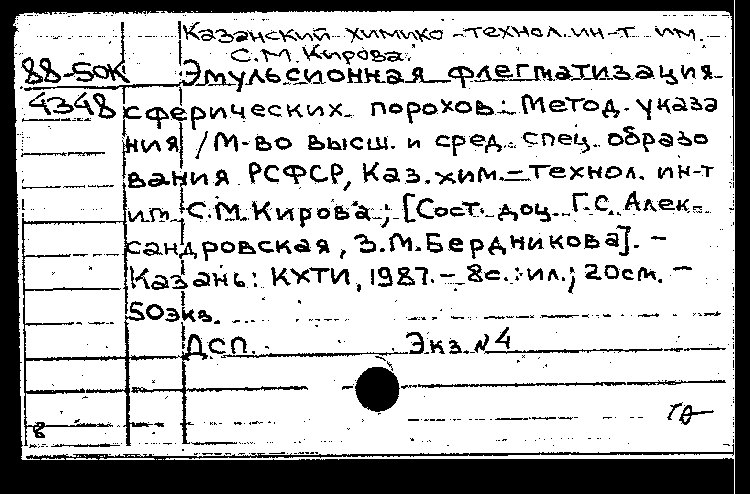 Казанский химико-технол. ин-т им.
С.М. Кирова.
88-50К Эмульсионная флегматизация
4348 сферических порохов: Метод. указа
ния / М-во высш. и сред. спец. образо
вания РСФСР, Каз. хим.-технол. ин-т
им. С.М. Кирова; [Сост. доц. Г.С. Алек-
сандровская, З.М. Бердникова]. -
Казань: КХТИ, 1987. - 8с.: ил.; 20см. -
50экз.
ДСП. Экз. №4
8